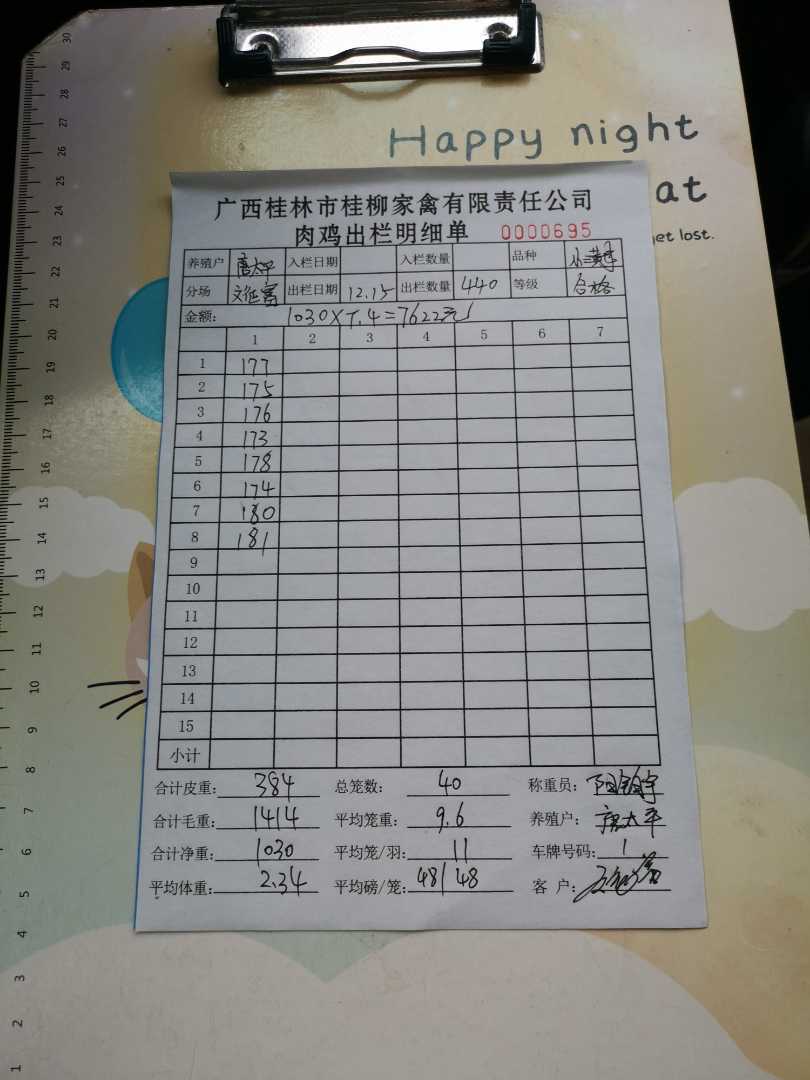 Happy night
at
get lost.
广西桂林市桂柳家禽有限责任公司
肉鸡出栏明细单 0000695
养殖户 唐太平 入栏日期 入栏数量 品种
分场 出栏日期 12.15 出栏数量 440 等级 合格
金额: 1030×7.4=7622元
1 2 3 4 5 6 7
1 177
2 175
3 176
4 173
5 178
6 174
7 180
8 181
9
10
11
12
13
14
15
小计
合计皮重: 384 总笼数: 40 称重员:
合计毛重: 1414 平均笼重: 9.6 养殖户: 唐太平
合计净重: 1030 平均笼/羽: 11 车牌号码: 1
平均体重: 2.34 平均磅/笼: 48/48 客户:
30
29
28
27
26
25
24
23
22
21
20
19
18
17
16
15
14
13
12
11
10
9
8
7
6
5
4
3
2
1